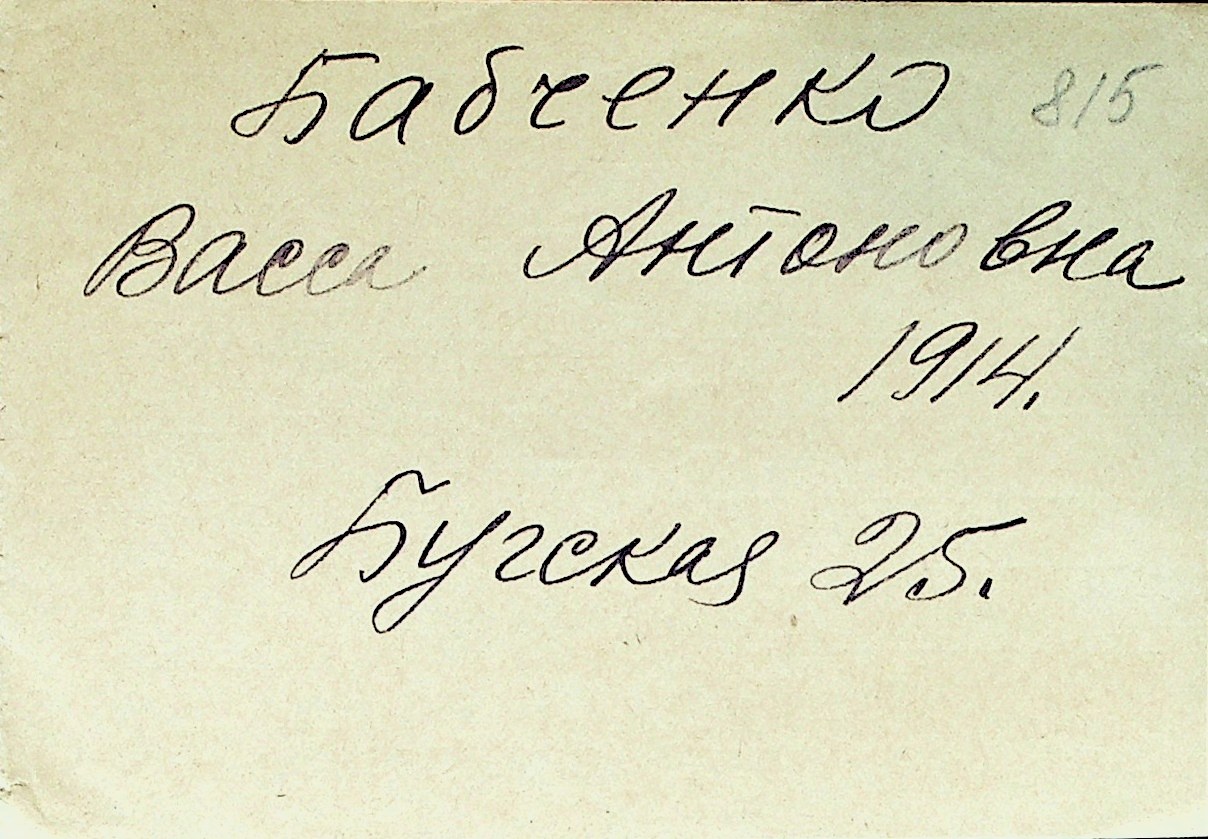 Бабченко 815
Васса Антоновна
1914.
Бугская 25.